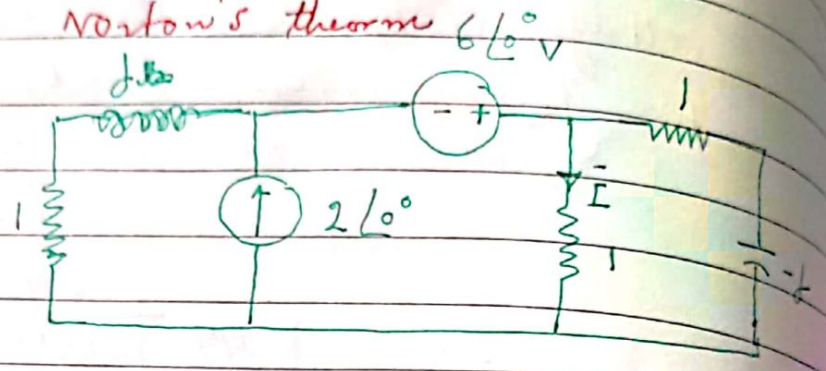 Norton's theorm
6∠0° V
1
- +
Ī
1
2∠0°
1
-j